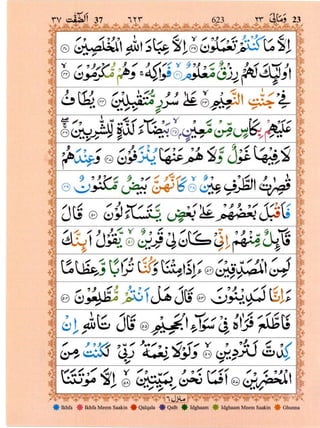 ٣٧ الصّٰٓفّٰت 37 ٦٢٣ 623 ٢٣ وَمَالِیَ 23
اِلَّا مَا كُنْتُمْ تَعْمَلُوْنَ ۙ﴿۳۹﴾ اِلَّا عِبَادَ اللّٰهِ الْمُخْلَصِیْنَ ﴿۴۰﴾
اُولٰٓىِٕكَ لَهُمْ رِزْقٌ مَّعْلُوْمٌ ۙ﴿۴۱﴾ فَوَاكِهُ ۚ وَهُمْ مُّكْرَمُوْنَ ۙ﴿۴۲﴾
فِیْ جَنّٰتِ النَّعِیْمِ ۙ﴿۴۳﴾ عَلٰی سُرُرٍ مُّتَقٰبِلِیْنَ ﴿۴۴﴾ یُطَافُ
عَلَیْهِمْ بِكَاْسٍ مِّنْ مَّعِیْنٍۭ ۙ﴿۴۵﴾ بَیْضَآءَ لَذَّةٍ لِّلشّٰرِبِیْنَ ۚۖ﴿۴۶﴾
لَا فِیْهَا غَوْلٌ وَّ لَا هُمْ عَنْهَا یُنْزَفُوْنَ ﴿۴۷﴾ وَعِنْدَهُمْ
قٰصِرٰتُ الطَّرْفِ عِیْنٌ ۙ﴿۴۸﴾ كَاَنَّهُنَّ بَیْضٌ مَّكْنُوْنٌ ﴿۴۹﴾
فَاَقْبَلَ بَعْضُهُمْ عَلٰی بَعْضٍ یَّتَسَآءَلُوْنَ ﴿۵۰﴾ قَالَ
قَآىِٕلٌ مِّنْهُمْ اِنِّیْ كَانَ لِیْ قَرِیْنٌ ۙ﴿۵۱﴾ یَّقُوْلُ اَىِٕنَّكَ
لَمِنَ الْمُصَدِّقِیْنَ ﴿۵۲﴾ ءَاِذَا مِتْنَا وَكُنَّا تُرَابًا وَّعِظَامًا
ءَاِنَّا لَمَدِیْنُوْنَ ﴿۵۳﴾ قَالَ هَلْ اَنْتُمْ مُّطَّلِعُوْنَ ﴿۵۴﴾
فَاطَّلَعَ فَرَاٰهُ فِیْ سَوَآءِ الْجَحِیْمِ ﴿۵۵﴾ قَالَ تَاللّٰهِ اِنْ
كِدْتَّ لَتُرْدِیْنِ ۙ﴿۵۶﴾ وَلَوْلَا نِعْمَةُ رَبِّیْ لَكُنْتُ مِنَ
الْمُحْضَرِیْنَ ﴿۵۷﴾ اَفَمَا نَحْنُ بِمَیِّتِیْنَ ۙ﴿۵۸﴾ اِلَّا مَوْتَتَنَا
منزل ٦
Ikhfa Ikhfa Meem Saakin Qalqala Qalb Idghaam Idghaam Meem Saakin Ghunna